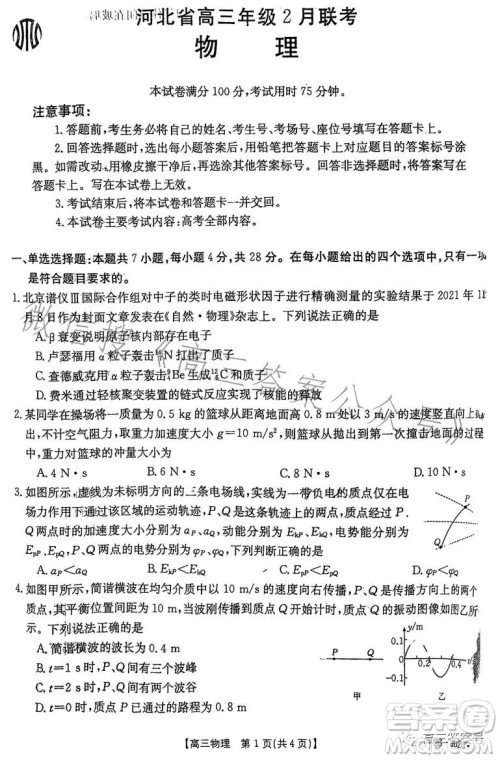 河北省高三年级2月联考
物 理
本试卷满分100分，考试用时75分钟。
注意事项：
1.答题前，考生务必将自己的姓名、考生号、考场号、座位号填写在答题卡上。
2.回答选择题时，选出每小题答案后，用铅笔把答题卡上对应题目的答案标号涂
黑。如需改动，用橡皮擦干净后，再选涂其他答案标号。回答非选择题时，将答案写在
答题卡上。写在本试卷上无效。
3.考试结束后，将本试卷和答题卡一并交回。
4.本试卷主要考试内容：高考全部内容。
一、单选选择题：本题共7小题，每小题4分，共28分。在每小题给出的四个选项中，只有一项
是符合题目要求的。
1.北京谱仪Ⅲ国际合作组对中子的类时电磁形状因子进行精确测量的实验结果于2021年11
月8日作为封面文章发表在《自然·物理》杂志上。下列说法正确的是
A.β衰变说明原子核内部存在质子
B.卢瑟福用α粒子轰击N发现了质子
C.查德威克用α粒子轰击Be生成C和质子
D.可以通过轻核聚变装置的链式反应获得核能
2.某同学在操场将一质量为0.5 kg的篮球从距离地面高0.8 m处以3 m/s的速度竖直向上抛
出，不计空气阻力，取重力加速度大小g=10 m/s²，则篮球从抛出到第一次撞击地面的过程
中，重力对篮球的冲量大小为
A.4 N·s B.6 N·s C.8 N·s D.10 N·s
3.如图所示，虚线为未标明方向的三条电场线，实线为一带负电的质点仅在电场力
作用下通过该区域的运动轨迹，P、Q是轨迹上的两点。质点在P、Q两点的加速
度大小分别为aP、aQ，质点在P、Q两点的动能分别为EkP、EkQ，电势能分别为
EpP、EpQ，P、Q两点的电势分别为φP、φQ，下列判断正确的是
A.aP<aQ B.EkP<EkQ C.EpP<EpQ D.φP<φQ
P
Q
4.如图甲所示，简谐横波在均匀介质中以10 m/s的速度向右传播，P、Q是传播方向上的两个
质点，其平衡位置间的距离为7 m，当波刚传播到质点Q开始计时，质点Q的振动图像如图乙所
示。下列说法正确的是
A.简谐横波的波长为0.4 m
B.t=1 s时，P、Q间有两个波峰
C.t=2 s时，P、Q间有两个波谷
D.t=5 s时，质点P运动的路程为0.8 m
P Q
甲
y/m
0.1
0
-0.1
0.2
0.4
乙
【高三物理 第1页(共4页)】
微信搜《高三答案公众号》